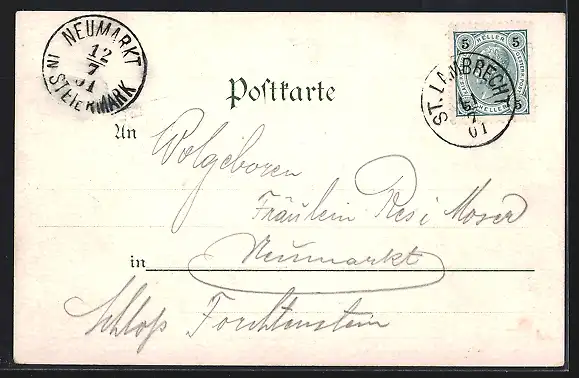 NEUMARKT
12
7
01
IN STEIERMARK
5 HELLER 5
5 HELLER 5
ST. LAMBRECHT
7
01
Postkarte
An
Wolgeboren
Fräulein Resi Moser
in Neumarkt
Schloß Forchtenstein